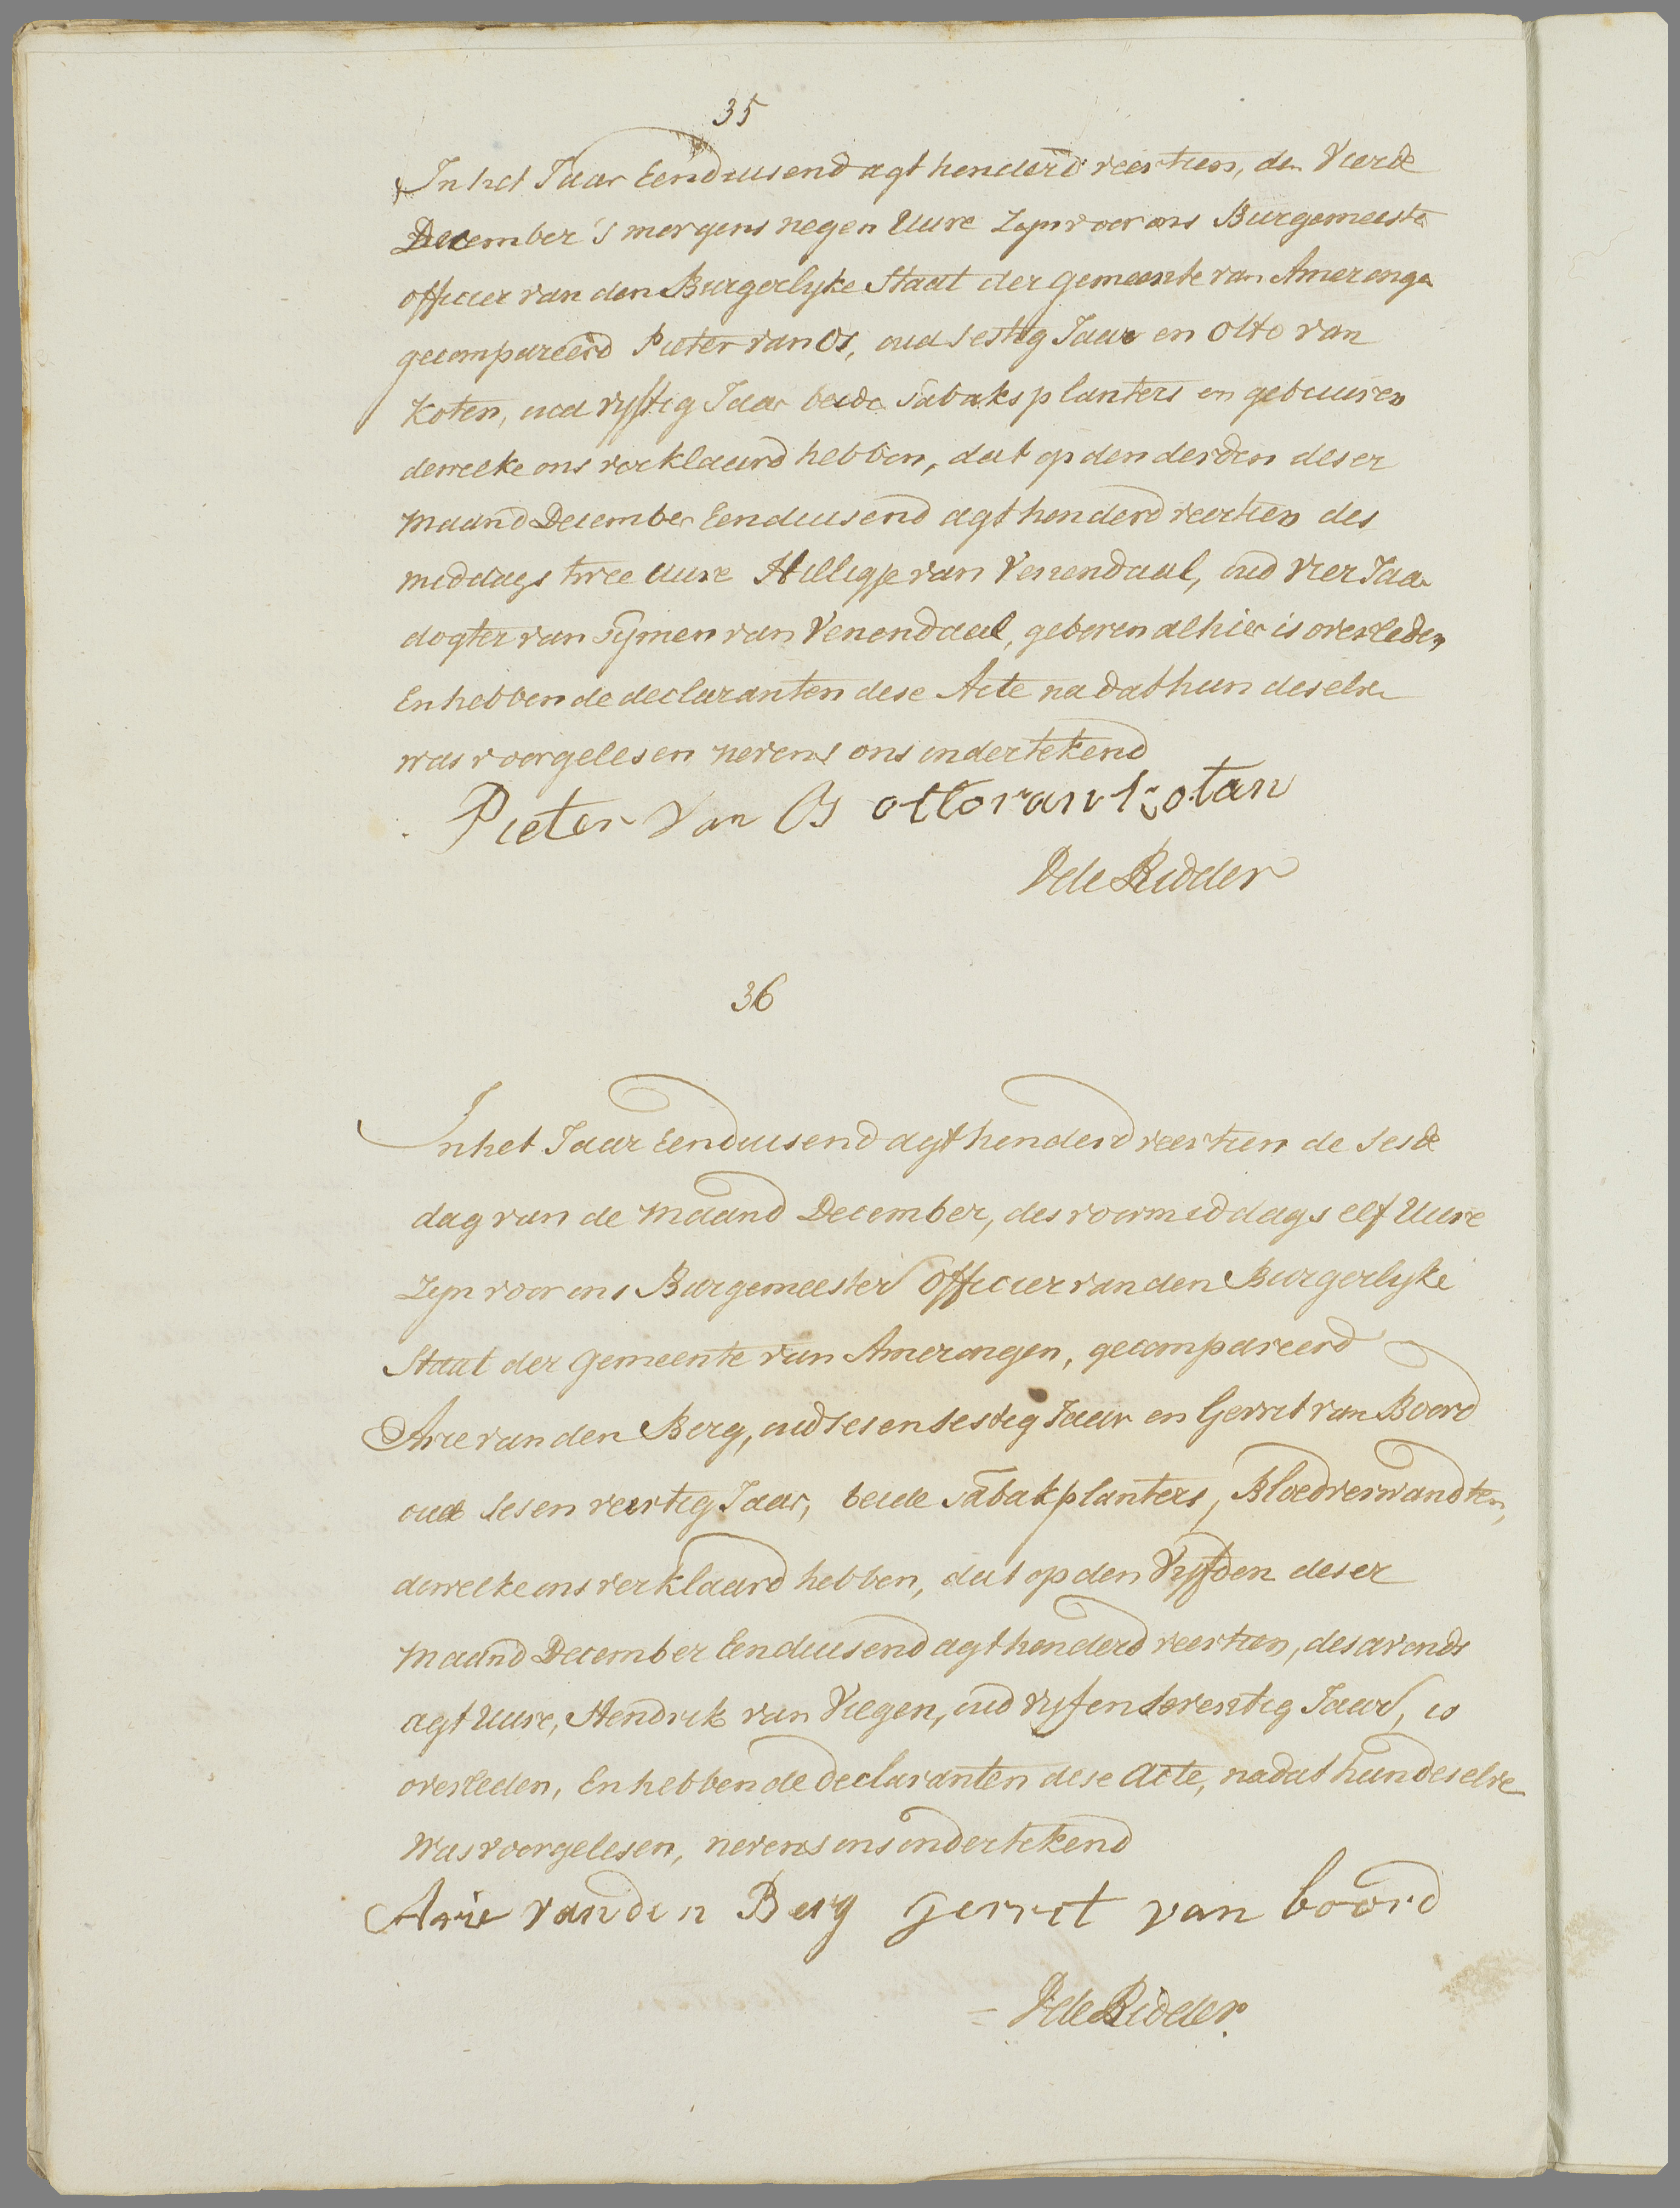 35
In het Jaar Eenduisend agt honderd veertien, den Vierde
December 's morgens negen Uure Zyn voor ons Burgemeeste
officier van den Burgerlyke Staat der Gemeente van Amerongen
gecompareerd Pieter van Os, oud sestig Jaar en Otto van
Koten, oud vyftig Jaar beide Tabaksplanters en gebuuren
dewelke ons verklaard hebben, dat op den derden deser
Maand December Eenduisend agt honderd veertien des
middags twee Uure Hilligje van Venendaal, oud vier Jaar
dogter van Tymen van Venendaal, geboren alhier is overleden
En hebben de declaranten dese Acte na dat hun deselve
was voorgelesen nevens ons ondertekend
Pieter van Os otto van kotan
D de Ridder
36
In het Jaar Eenduisend agt honderd veertien de sesde
dag van de Maand December, des voormiddags elf Uure
Zyn voor ons Burgemeester Officier van den Burgerlyke
Staat der Gemeente van Amerongen, gecompareerd
Arie van den Berg, oud sesensestig Jaar en Gerrit van Boord
oud sesenveertig Jaar, beide Tabakplanters, Bloedverwandten,
dewelke ons verklaard hebben, dat op den Vyfden deser
Maand December Eenduisend agt honderd veertien, des avonds
agt Uure, Hendrik van Vlegen, oud vyfenseventig Jaar, is
overleden, En hebben de Declaranten dese Acte, nadat hun deselve
Was voorgelesen, nevens ons ondertekend
Arie van den Berg Gerret van boord
D de Ridder.